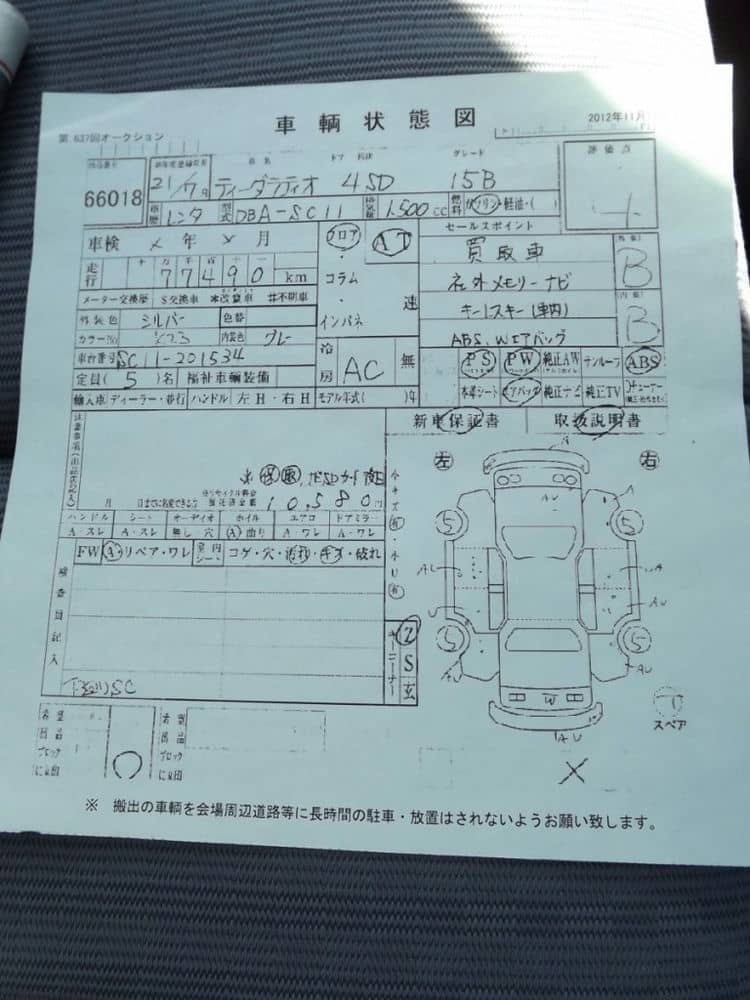 車輌状態図
第 637回オークション
2012年11月
車名 ドア 形状 グレード 評価点
66018
21/7 ティーダラティオ 4SD 15B
車歴 レンタ 型式 DBA-SC11 排気量 1,500cc 燃料 ガソリン・軽油・( )
車検 × 年 × 月
フロア・コラム・インパネ
AT
速
セールスポイント
買取車
社外メモリーナビ
キーレスキー(車内)
ABS、Wエアバッグ
外装 B
内装 B
走行 十万千百十 77490 km
メーター交換歴 S交換車 *改竄車 #不明車
外装色 シルバー 色替
カラーNo K23 内装色 グレー
冷房 AC 無
車台番号 SC11-201534
定員 ( 5 ) 名 福祉車輌装備
輸入車 ディーラー・並行 ハンドル 左H・右H モデル年式( )年
PS PW 純正AW サンルーフ ABS
本革シート エアバック 純正ナビ 純正TV
新車保証書 取扱説明書
注意事項
月 日までに名変できる方
預託済金額 10,580円
ハンドル シート オーディオ ホイル エアロ ドアミラー
A・スレ A・スレ 無し 穴 (A)曲り A・ワレ A・ワレ
FW A・リペア・ワレ 室内シート コゲ・穴・汚れ・キズ・破れ
検査員記入
下廻りSC
小キズ有・小U有
コーナー
Z
S
玄
左 右
A
AU
A
5 5
AU
A
AU
U
5 5
AU
AU
W
AU
×
T
スペア
希望出品ブロック
希望出品ブロック
※ 搬出の車輌を会場周辺道路等に長時間の駐車・放置はされないようお願い致します。